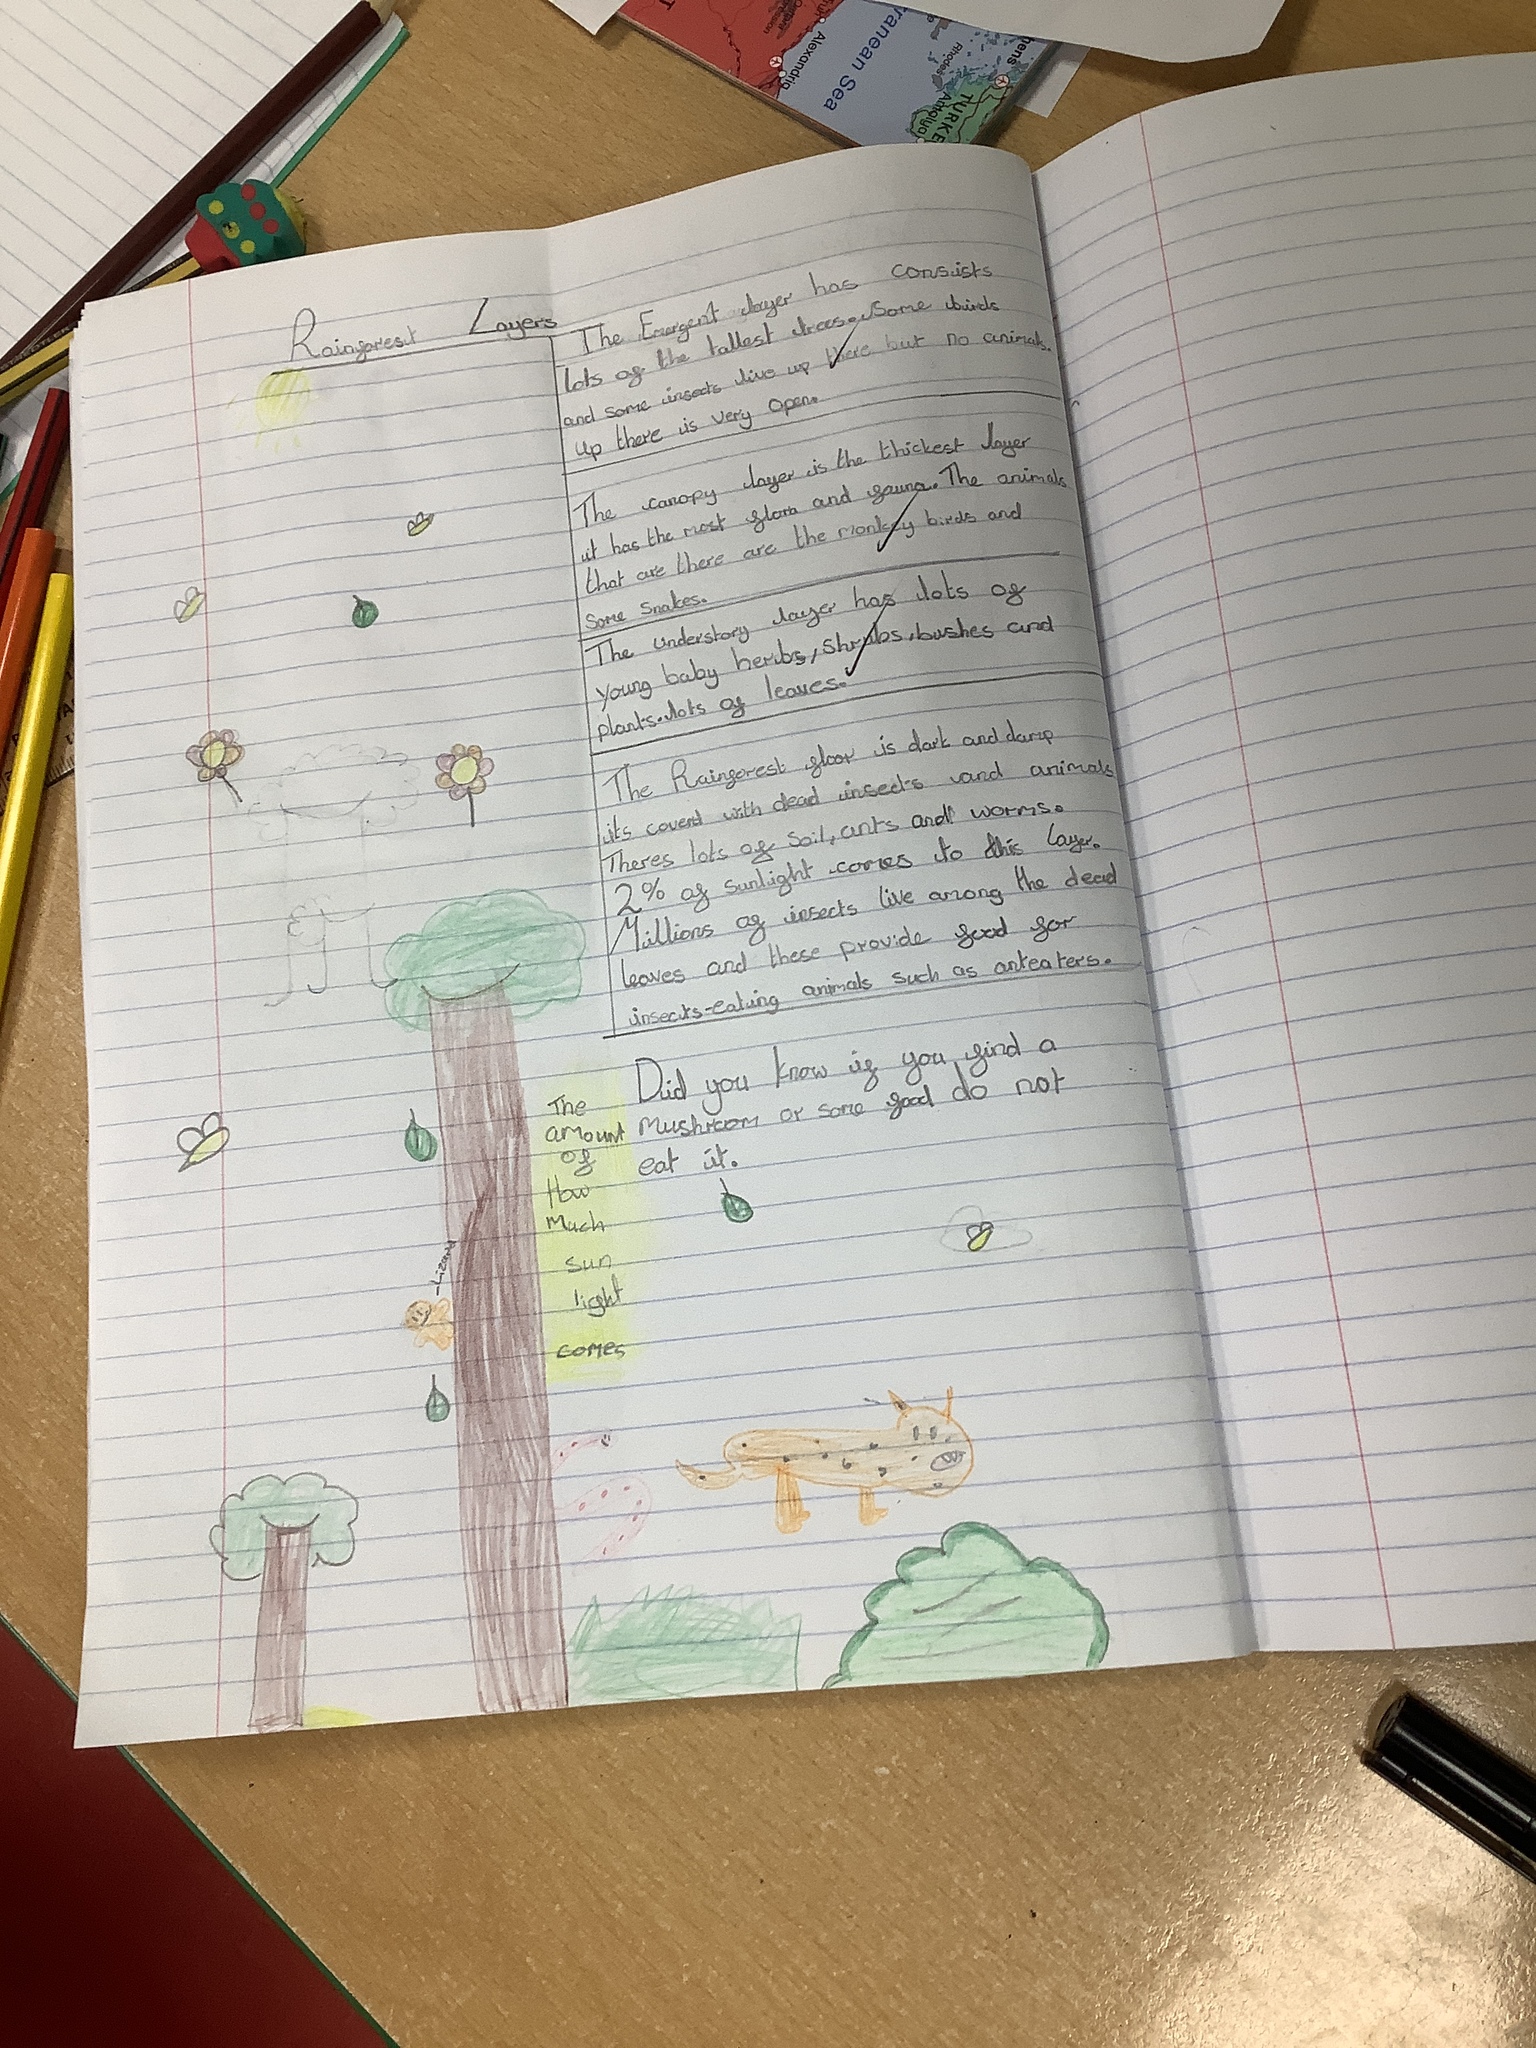 Rainforest Layers
The Emergent layer has consists
lots of the tallest trees. Some birds
and some insects live up there but no animals.
Up there is very open.
The canopy layer is the thickest layer
it has the most flora and fauna. The animals
that are there are the monkey birds and
some snakes.
The understory layer has lots of
young baby herbs, shrubs, bushes and
plants. lots of leaves.
The Rainforest floor is dark and damp
its coverd with dead insects and animals
Theres lots of soil, ants and worms.
2% of sunlight comes to this layer.
Millions of insects live among the dead
leaves and these provide food for
insects-eating animals such as anteaters.
Did you know if you find a
mushroom or some food do not
eat it.
The
amount
of
How
Much
sun
light
comes
-Lizard
Alexandria
ranean Sea
Rhodes
hens
Antalya
TURKE